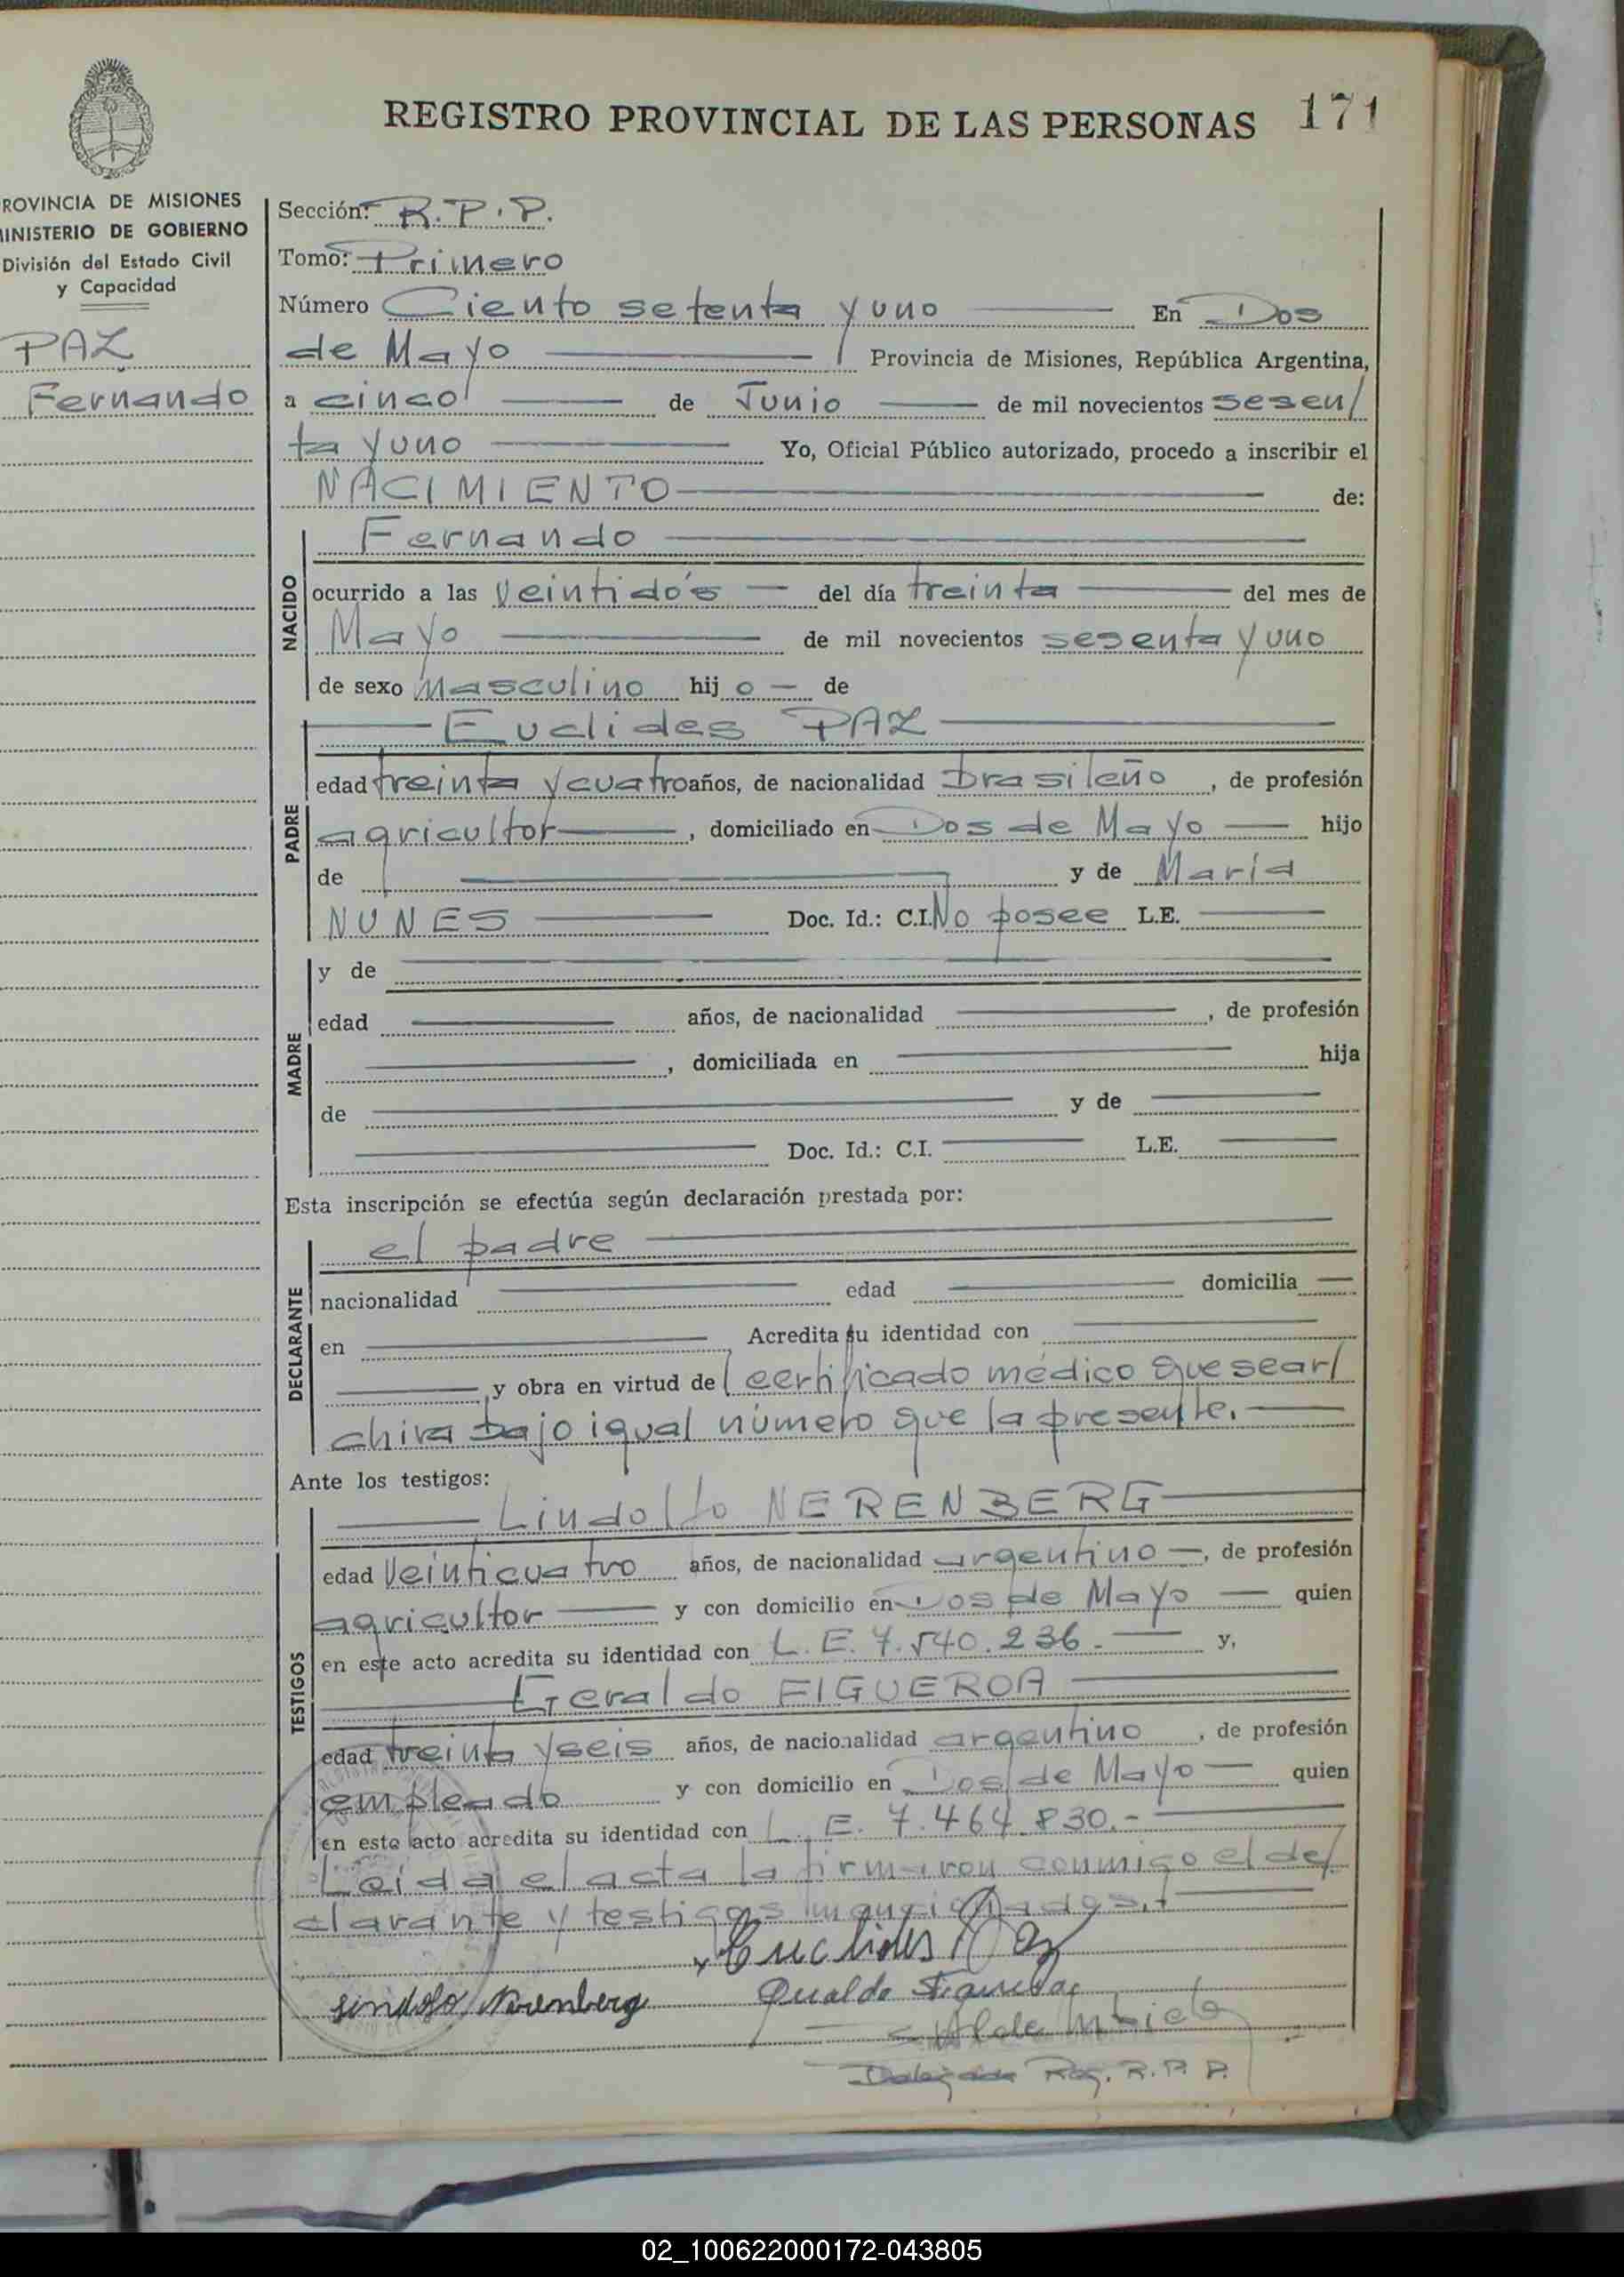 REGISTRO PROVINCIAL DE LAS PERSONAS 171
ROVINCIA DE MISIONES
INISTERIO DE GOBIERNO
División del Estado Civil
y Capacidad
PAZ
Fernando
Sección: R.P.P.
Tomo: Primero
Número Ciento setenta y uno En Dos
de Mayo Provincia de Misiones, República Argentina,
a cinco de Junio de mil novecientos sesen/
ta y uno Yo, Oficial Público autorizado, procedo a inscribir el
NACIMIENTO de:
Fernando
NACIDO
ocurrido a las veintidós del día treinta del mes de
Mayo de mil novecientos sesenta y uno
de sexo Masculino hij o de
Euclides PAZ
PADRE
edad treinta y cuatro años, de nacionalidad brasileño, de profesión
agricultor, domiciliado en Dos de Mayo hijo
de y de María
NUNES Doc. Id.: C.I. No posee L.E.
MADRE
y de
edad años, de nacionalidad , de profesión
, domiciliada en hija
de y de
Doc. Id.: C.I. L.E.
Esta inscripción se efectúa según declaración prestada por:
el padre
DECLARANTE
nacionalidad edad domicilia
en Acredita su identidad con
, y obra en virtud de certificado médico que se ar/
chiva bajo igual número que la presente.
Ante los testigos:
Lindolfo NERENBERG
TESTIGOS
edad veinticuatro años, de nacionalidad argentino, de profesión
agricultor y con domicilio en Dos de Mayo quien
en este acto acredita su identidad con L.E. 7.540.236.- y,
Geraldo FIGUEROA
edad treinta y seis años, de nacionalidad argentino, de profesión
empleado y con domicilio en Dos de Mayo quien
en este acto acredita su identidad con L.E. 7.464.830.-
Leida el acta la firmaron conmigo el de/
clarante y testigos mencionados.
Euclides Paz
Lindolfo Nerenberg
Figueroa
Reg. R.P.P.
02_100622000172-043805